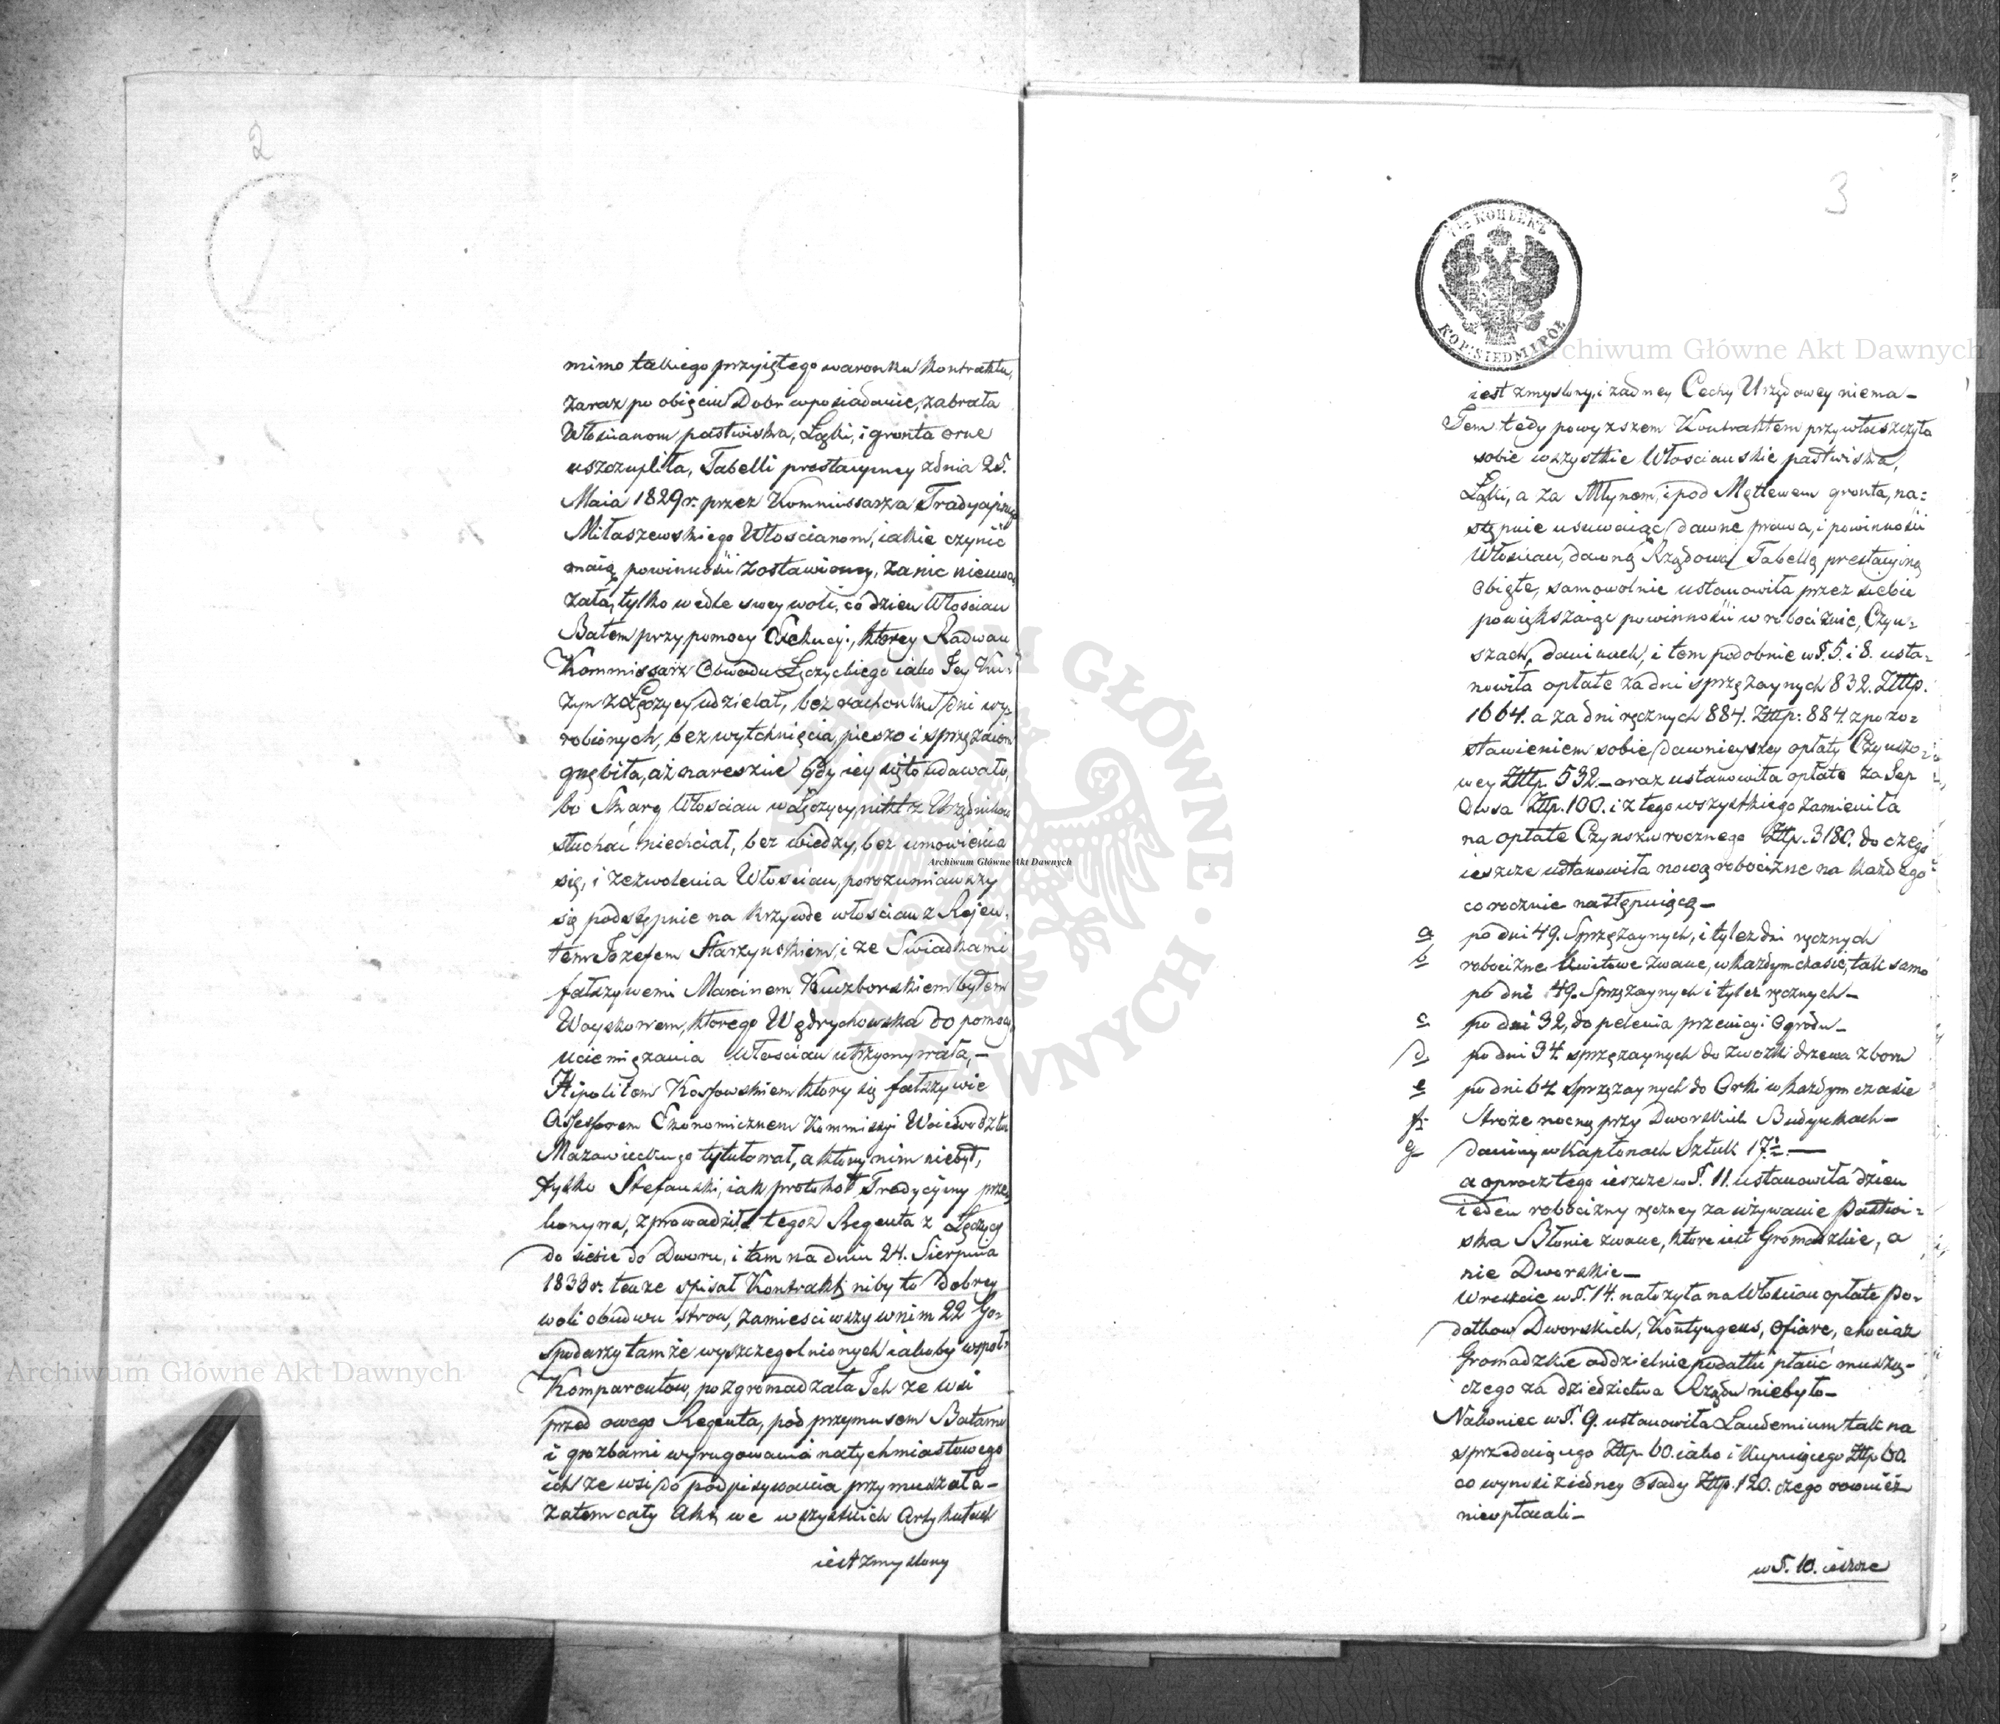 2
mimo takiego przyiętego warunku kontraktu,
zaraz po obięciu Dobr w posiadanie, zabrała
Włościanom pastwiska, Łąki, i gronta orne
uszczupliła, Tabelli prestacyiney z dnia 25.
Maia 1829 r. przez Kommissarza Tradycyinego
Miłaszewskiego Włościanom, iakie czynić
maią powinności zostawioney, za nic nieuwa-
żała, tylko wedle swey woli, co dzień Włościan
Batem przy pomocy Exekucyi, którey Radwan
Kommissarz Obwodu Łęczyckiego iako Jey Ku-
zyn z Łęczycy udzielał, bez rachunku dni wy-
robionych, bez wytchnięcia, pieszo i sprzężaiem
gnębiła, aż nareszcie gdy iey się to udawało,
bo Skarg Włościan w Łęczycy nikt z Urzędników
słuchać niechciał, bez wiedzy, bez umowienia
się, i zezwolenia Włościan, porozumiawszy
się podstępnie na krzywdę włościan z Rejen-
tem Józefem Starzyńskiem, i ze Swiadkami
fałszywemi Marcinem Kuczborskiem byłem
Woyskowem, którego Wędrychowska do pomocy
uciemiężania Włościan utrzymywała,—
Hipolitem Kossowskiem który się fałszywie
Assessorem Ekonomicznem Kommissyi Woiewództwa
Mazowieckiego tytułował, a którym nim niebył,
tylko Stefański, iak protokół Tradycyiny prze-
konywa, zprowadziła tegoż Regenta z Łęczycy
do siebie do Dworu, i tam na dniu 24. Sierpnia
1833 r. tenże spisał Kontrakt, niby to dobrey
woli obudwu stron, zamieściwszy w nim 22 Go-
spodarzy tamże wyszczególnionych iakoby współ-
Komparentów, pozgromadzała Ich ze wsi
przed owego Regenta, pod przymusem Batamu
i grozbami wyrugowania natychmiastowego
ich ze wsi, do podpisywania przymuszała—
Zatem cały Akt, we wszystkich Artykułach
iest zmyslony
3
7½ КОПѢЕКЪ
KOP: SIEDM I PÓŁ
iest zmyslony, i żadney Cechy Urzędowey niema—
Tem tedy powyższem Kontraktem przywłaszczyła
sobie wszystkie Włościańskie pastwiska,
Łąki, a za Młynem, i pod Mętlewem gronta, na-
stępnie usuwaiąc dawne prawa, i powinności
Włościan, dawną Rządową Tabellą prestacyiną
obięte, samowolnie ustanowiła przez siebie
powiększaiąc powinności w robociznie, Czyn-
szach, daninach, i tem podobnie w §. 5. i 8. usta-
nowiła opłate za dni sprzężaynych 832. Złttp.
1664. a za dni ręcznych 884. Złttp: 884. z pozo-
stawieniem sobie, dawnieyszey opłaty Czynszo-
wey Złttp. 532— oraz ustanowiła opłate za Sep
Owsa Złttp. 100. i z tego wszystkiego zamieniła
na opłate Czynszu rocznego Złttp. 3180. do czego
ieszcze ustanowiła nową robociznę na każdego
corocznie następuiącą—
a po dni 49. Sprzężaynych, i tyleż dni ręcznych
b robocizne kwitowe zwane, w każdym czasie, tak samo
po dni 49. Sprzężaynych i tyleż ręcznych—
c po dni 32, do pelenia przenicy i Ogrodu—
d po dni 34 sprzężaynych do zwózki drzewa z boru
e po dni 64 sprzężaynych do Orki w każdym czasie
f Stroże nocną przy Dworskich Budynkach—
g daniny w Kapłonach Sztuk 17.—
a oprocz tego ieszcze w §. 11. ustanowiła dzień
ieden robocizny ręczney za używanie Pastwi-
ska Błonie zwane, które iest Gromadzkie, a
nie Dworskie—
Wreszcie w §. 14. nałożyła na Włościan opłate Po-
datków Dworskich, Kontyngens, Ofiare, chociaż
Gromadzkie oddzielnie podatki płacić muszą—
czego za dziedzictwa Rządu niebyło—
Nakoniec w §. 9. ustanowiła Laudemium tak na
sprzedaiącego Złttp. 60. iako i kupuiącego Złttp 60.
co wynosi z iedney Osady Złttp. 120. czego również
nieopłacali—
w §. 10. ieszcze
Archiwum Główne Akt Dawnych
Archiwum Główne Akt Dawnych
Archiwum Główne Akt Dawnych
ARCHIWUM GŁÓWNE AKT DAWNYCH